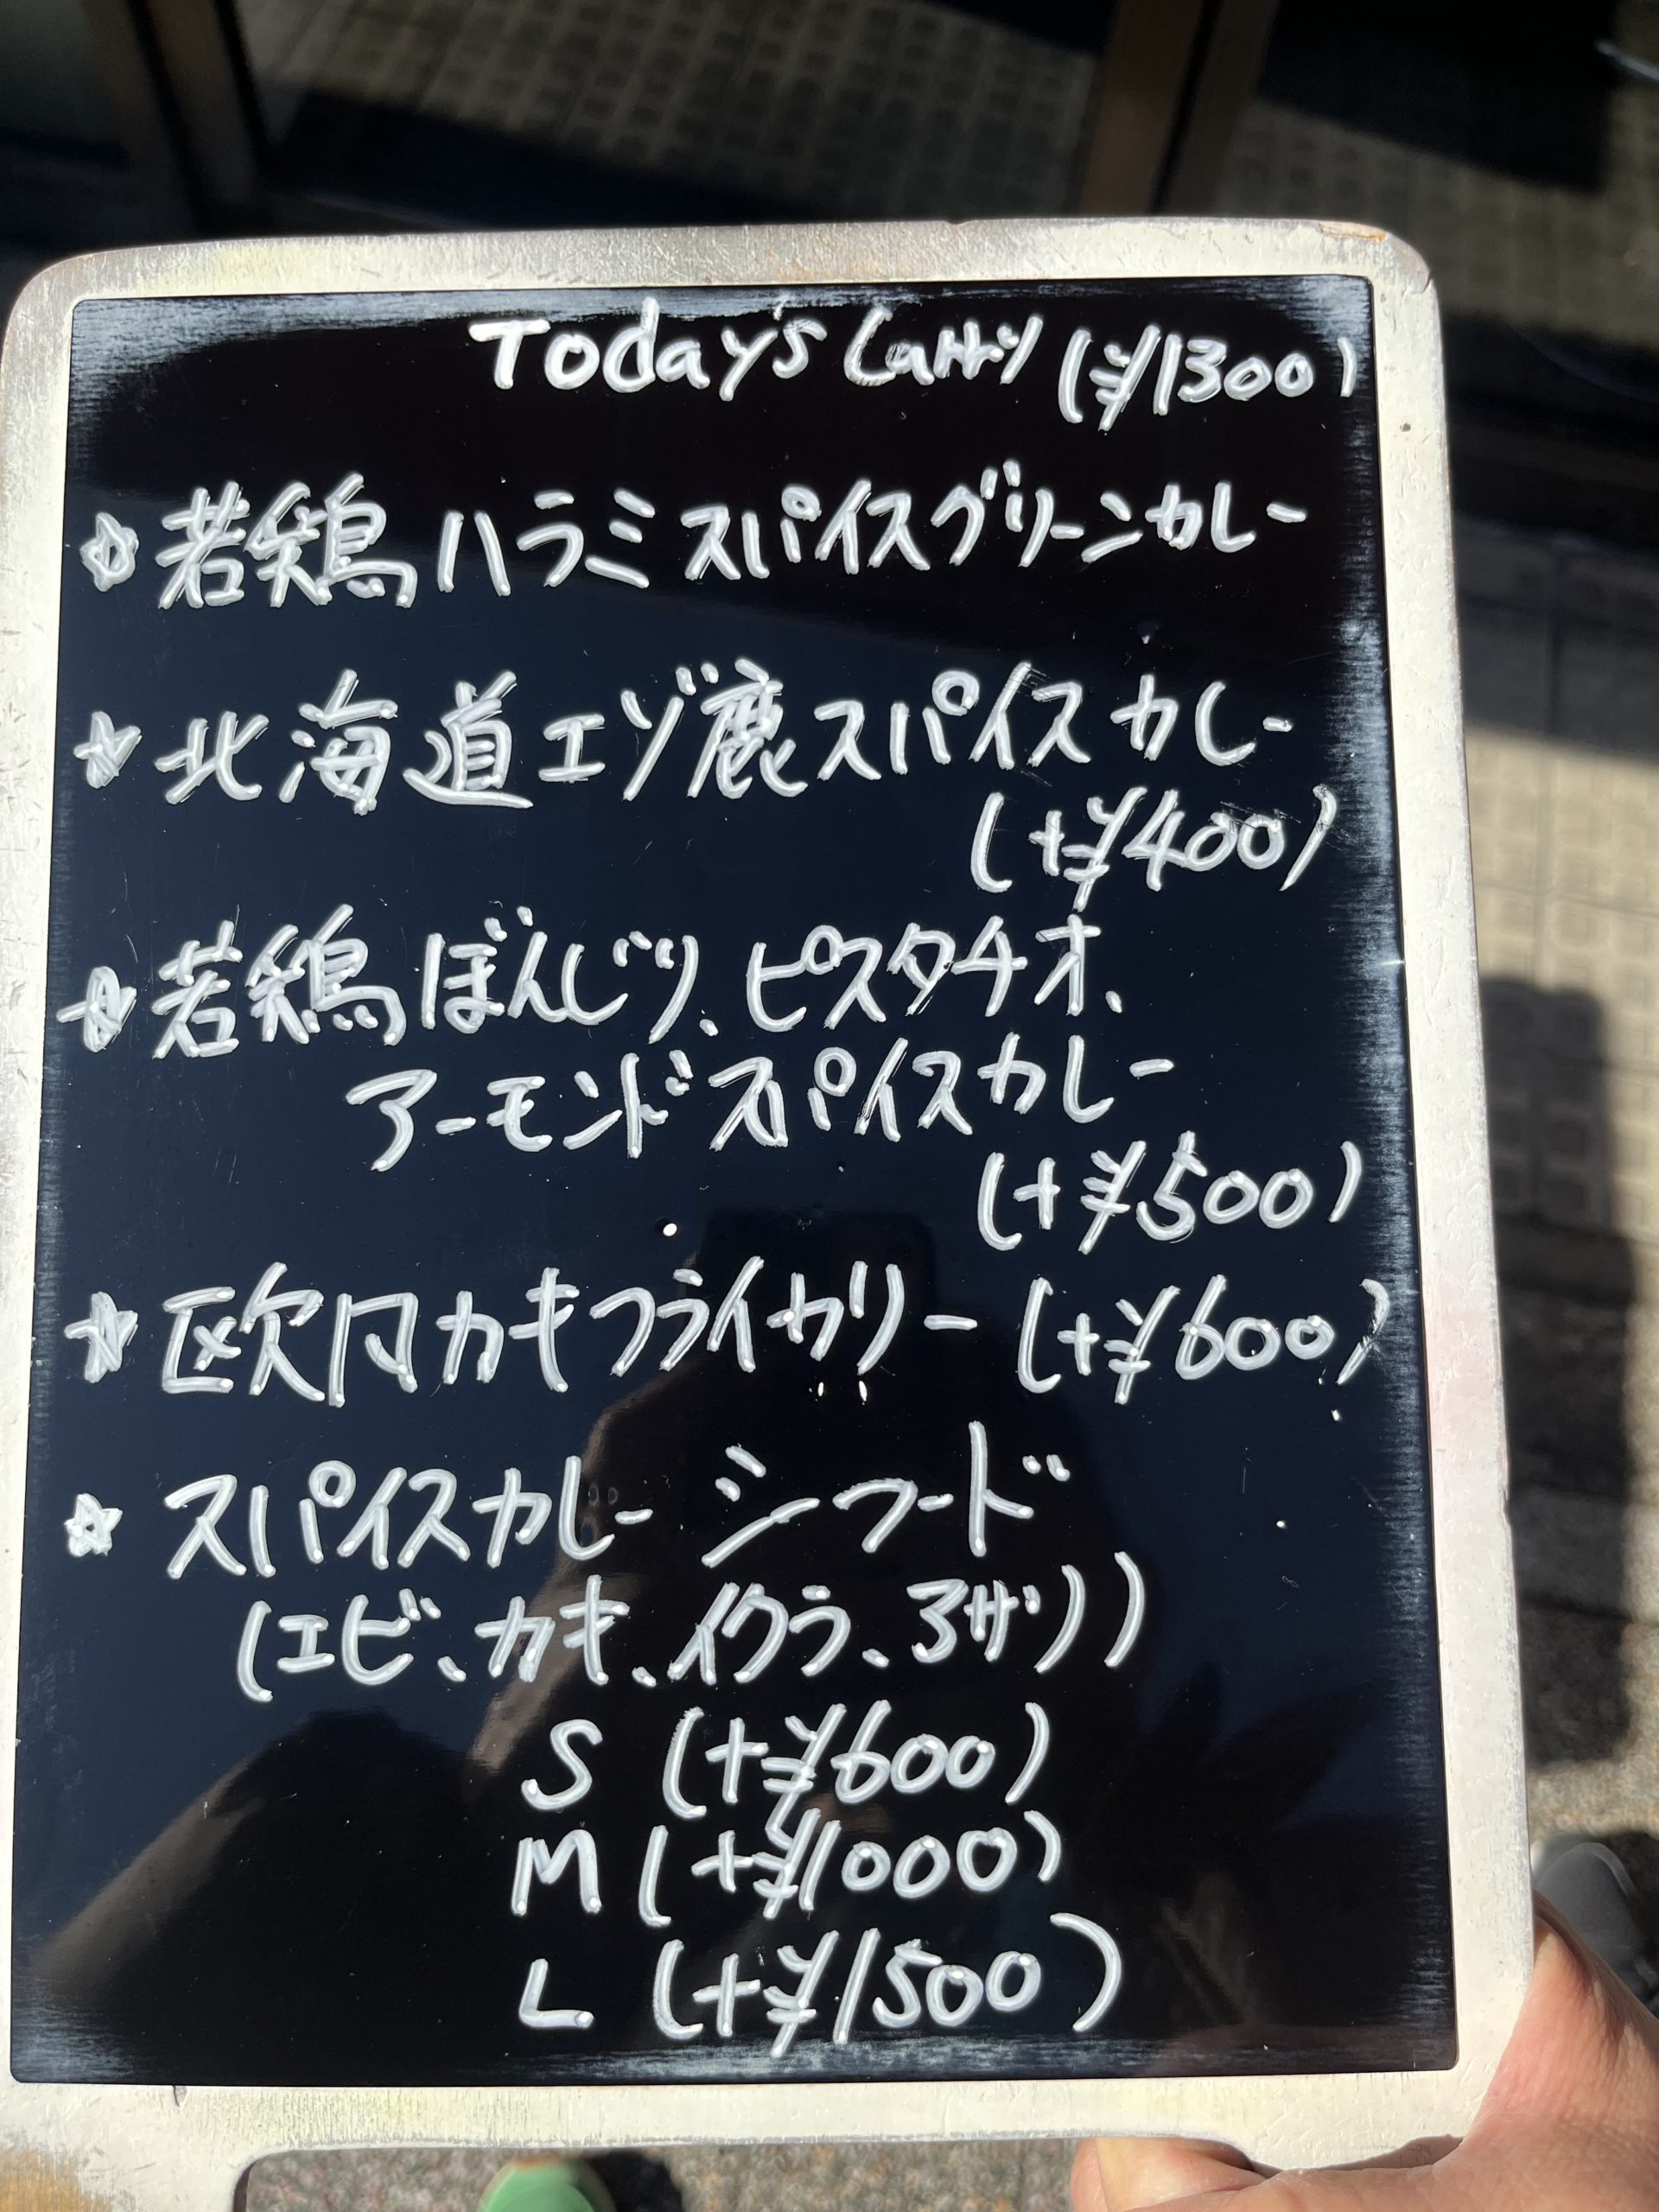 Today's Curry (¥1300)
☆若鶏ハラミスパイスグリーンカレー
☆北海道エゾ鹿スパイスカレー
(+¥400)
☆若鶏ぼんじり、ピスタチオ、
アーモンドスパイスカレー
(+¥500)
☆欧風カキフライカリー (+¥600)
☆スパイスカレーシーフード
(エビ、カキ、イクラ、アサリ)
S (+¥600)
M (+¥1000)
L (+¥1500)